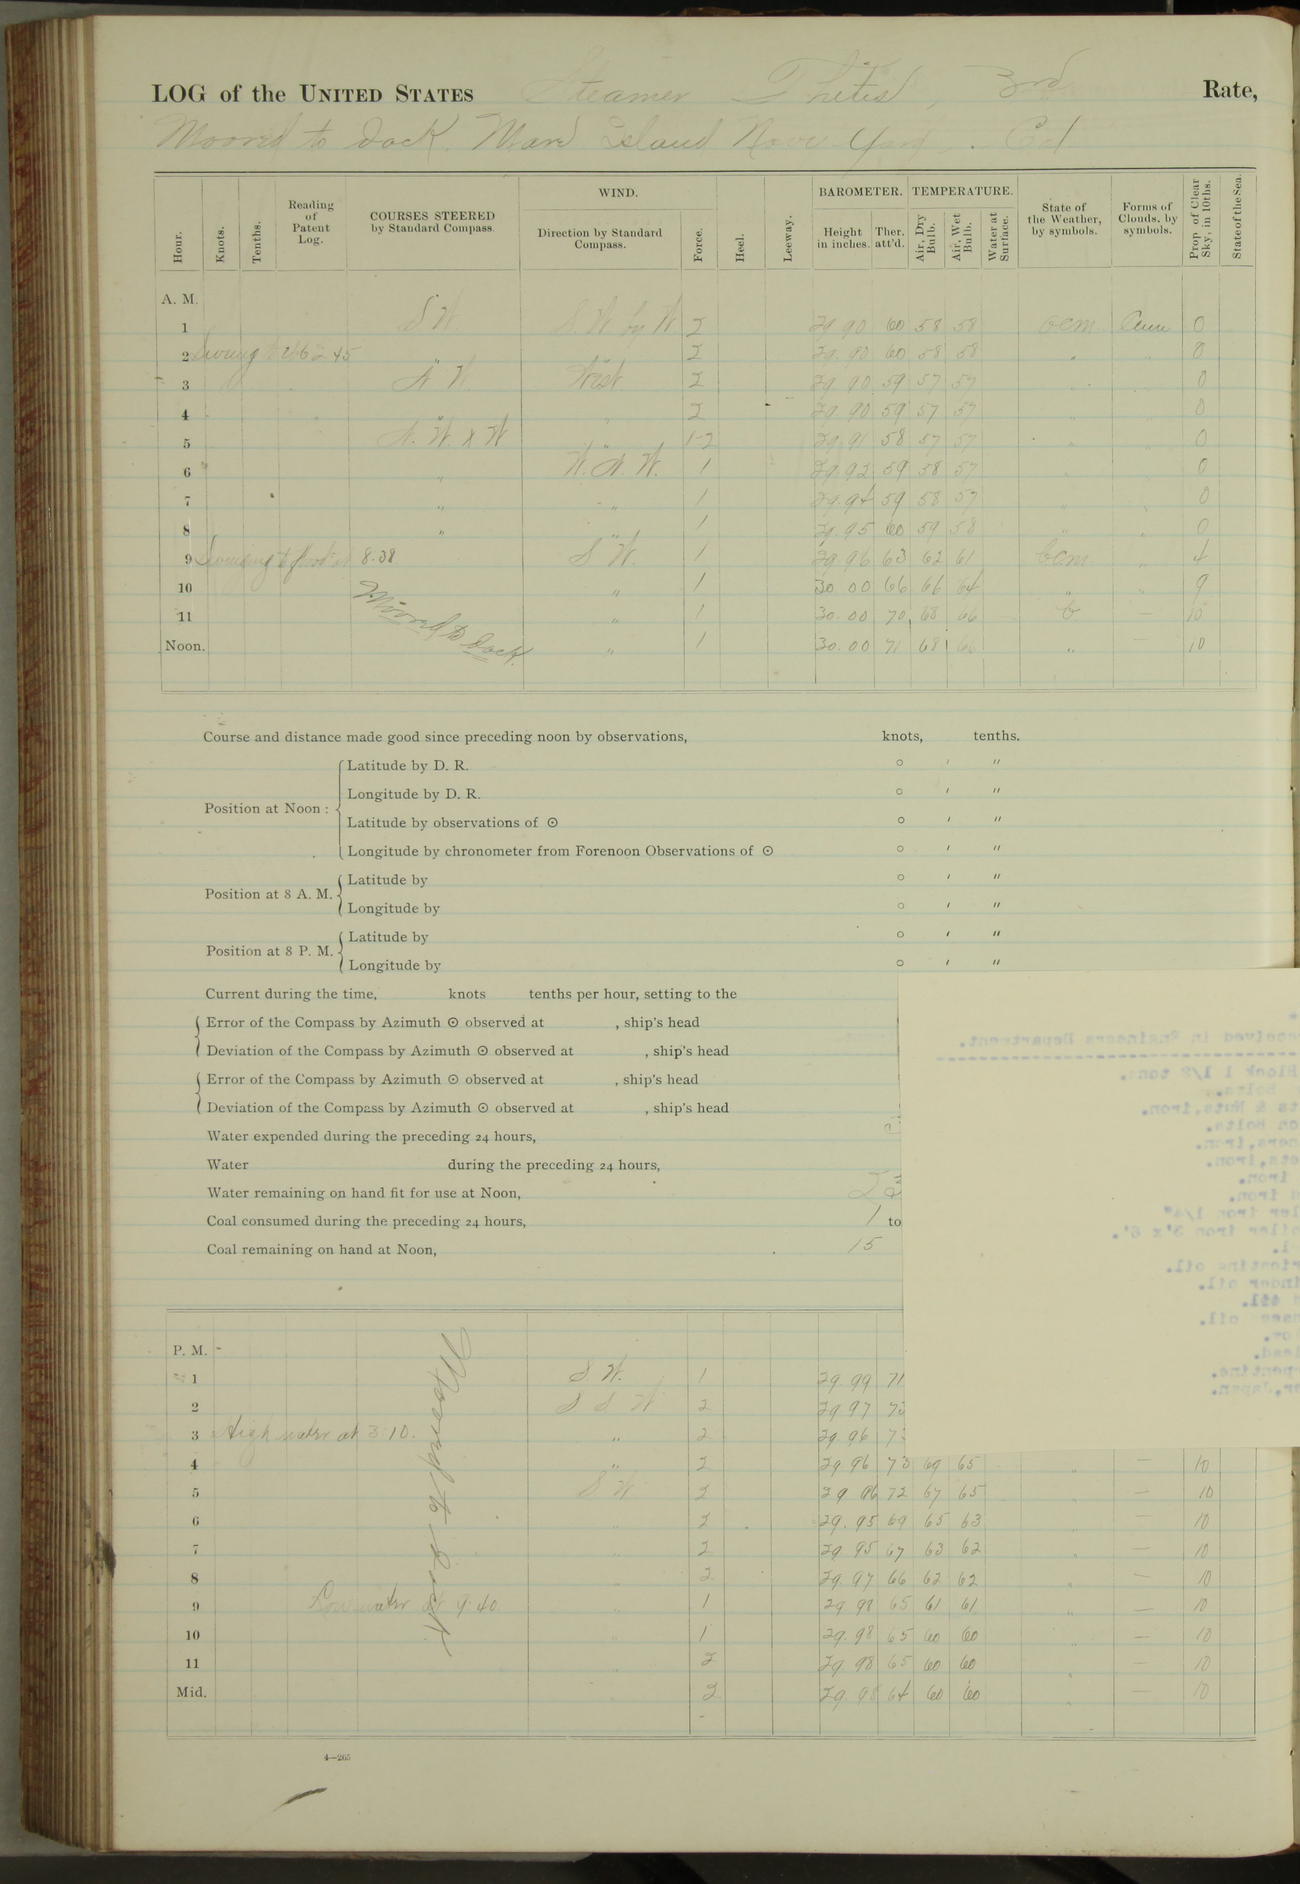 LOG of the UNITED STATES Steamer Thetis, 3rd Rate,
Moored to dock. Mare Island Navy Yard. Cal
Hour. Knots. Tenths. Reading of Patent Log. COURSES STEERED by Standard Compass. WIND. Direction by Standard Compass. Force. Heel. Leeway. BAROMETER. Height in inches. Ther. att'd. TEMPERATURE. Air, Dry Bulb. Air, Wet Bulb. Water at Surface. State of the Weather, by symbols. Forms of Clouds, by symbols. Prop. of Clear Sky, in 10ths. State of the Sea.
A. M.
1 S W S. W by W 2 29 90 60 58 58 ocm 0
2 " 2 29. 90 60 58 58 " 0
3 N W West 2 29 90 59 57 57 0
4 " " 2 29 90 59 57 57 " 0
5 N. W. x W " 1-2 29. 91 58 57 57 " 0
6 " W. N. W. 1 29. 92 59 58 57 0
7 " " 1 29. 94 59 58 57 " 0
8 " " 1 29. 95 60 59 58 " 0
9 Swinging to flood at 8.38 S W. 1 29. 96 63 62 61 bcm " 4
10 " 1 30 00 66 66 64 " " 9
11 " 1 30. 00 70 68 66 b — 10
Noon. " 1 30. 00 71 68 66 " — 10
Moored to dock.
Course and distance made good since preceding noon by observations, knots, tenths.
Position at Noon : Latitude by D. R. ° ′ ″
Longitude by D. R. ° ′ ″
Latitude by observations of ⊙ ° ′ ″
Longitude by chronometer from Forenoon Observations of ⊙ ° ′ ″
Position at 8 A. M. Latitude by ° ′ ″
Longitude by ° ′ ″
Position at 8 P. M. Latitude by ° ′ ″
Longitude by ° ′ ″
Current during the time, knots tenths per hour, setting to the
Error of the Compass by Azimuth ⊙ observed at , ship's head
Deviation of the Compass by Azimuth ⊙ observed at , ship's head
Error of the Compass by Azimuth ⊙ observed at , ship's head
Deviation of the Compass by Azimuth ⊙ observed at , ship's head
Water expended during the preceding 24 hours,
Water during the preceding 24 hours,
Water remaining on hand fit for use at Noon,
Coal consumed during the preceding 24 hours, 1 to
Coal remaining on hand at Noon, 15
P. M.
1 S W. 1 29. 99 71
2 S S W 2 29 97 73
3 High water at 3:10. " 2 29. 96
4 " 2 29 96 73 69 65 " — 10
5 S W 2 29 96 72 67 65 — 10
6 " 2 29. 95 69 65 63 " — 10
7 " 2 29 95 67 63 62 " — 10
8 " 2 29. 97 66 62 62 " — 10
9 Low water at 9.40 " 1 29 98 65 61 61 " — 10
10 " 1 29. 98 65 60 60 " — 10
11 " 2 29. 98 65 60 60 " — 10
Mid. 2 29. 98 64 60 60 " — 10
Moored to Dock
4—265